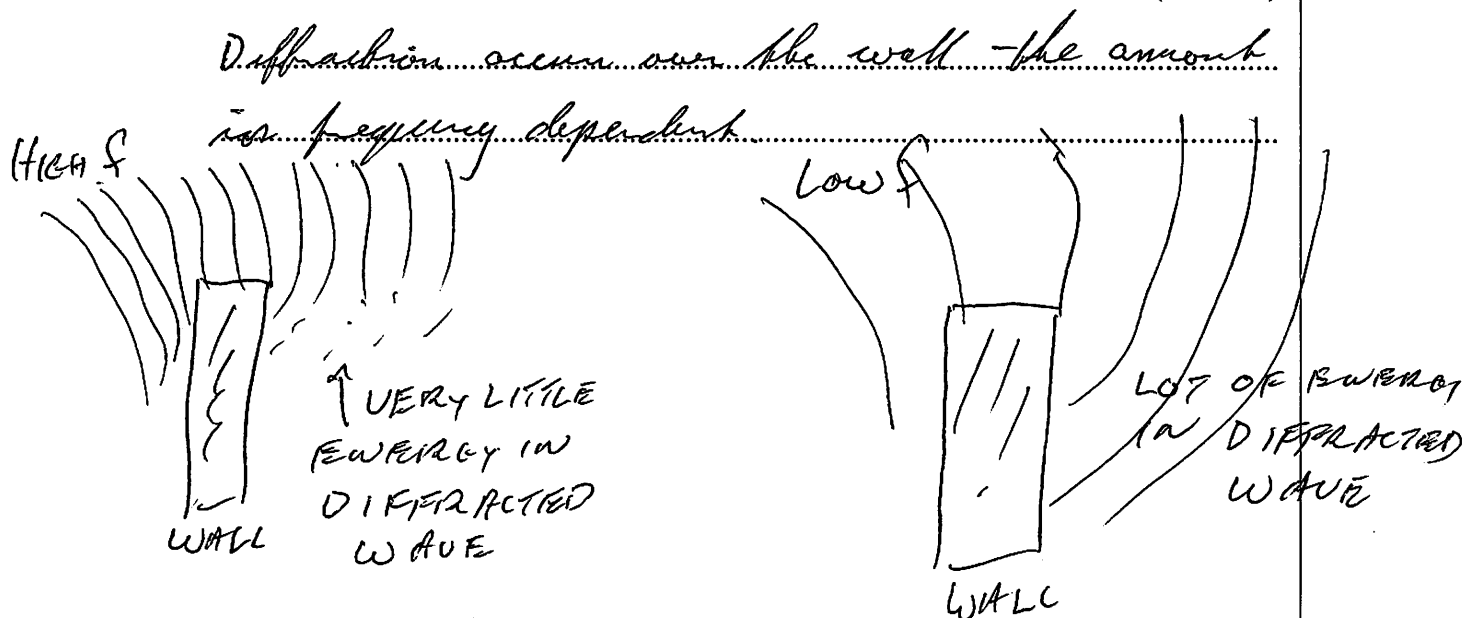 Diffraction occurs over the wall - the amount
is frequency dependent.
HIGH f
LOW f
VERY LITTLE
ENERGY IN
DIFFRACTED
WAVE
WALL
LOT OF ENERGY
IN DIFFRACTED
WAVE
WALL